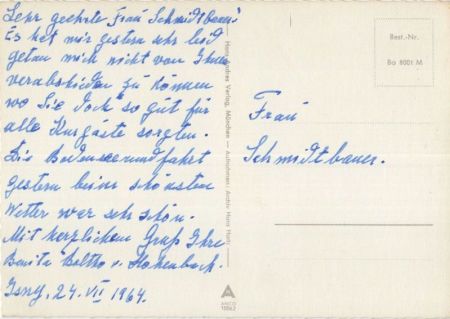 Sehr geehrte Frau Schmidtbauer!
Es hat mir gestern sehr leid
getan mich nicht von Ihnen
verabschieden zu können
wo Sie doch so gut für
alle Kurgäste sorgten.
Die Bodenseerundfahrt
gestern beim schönsten
Wetter war sehr schön.
Mit herzlichem Gruß Ihre
Benita Boltho v. Hohenbach.
Isny, 24. VII 1964.
Hans Andres Verlag, München – Aufnahmen: Archiv Hans
Best.-Nr.
Bo 8001 M
Frau
Schmidtbauer.
A
ANCO